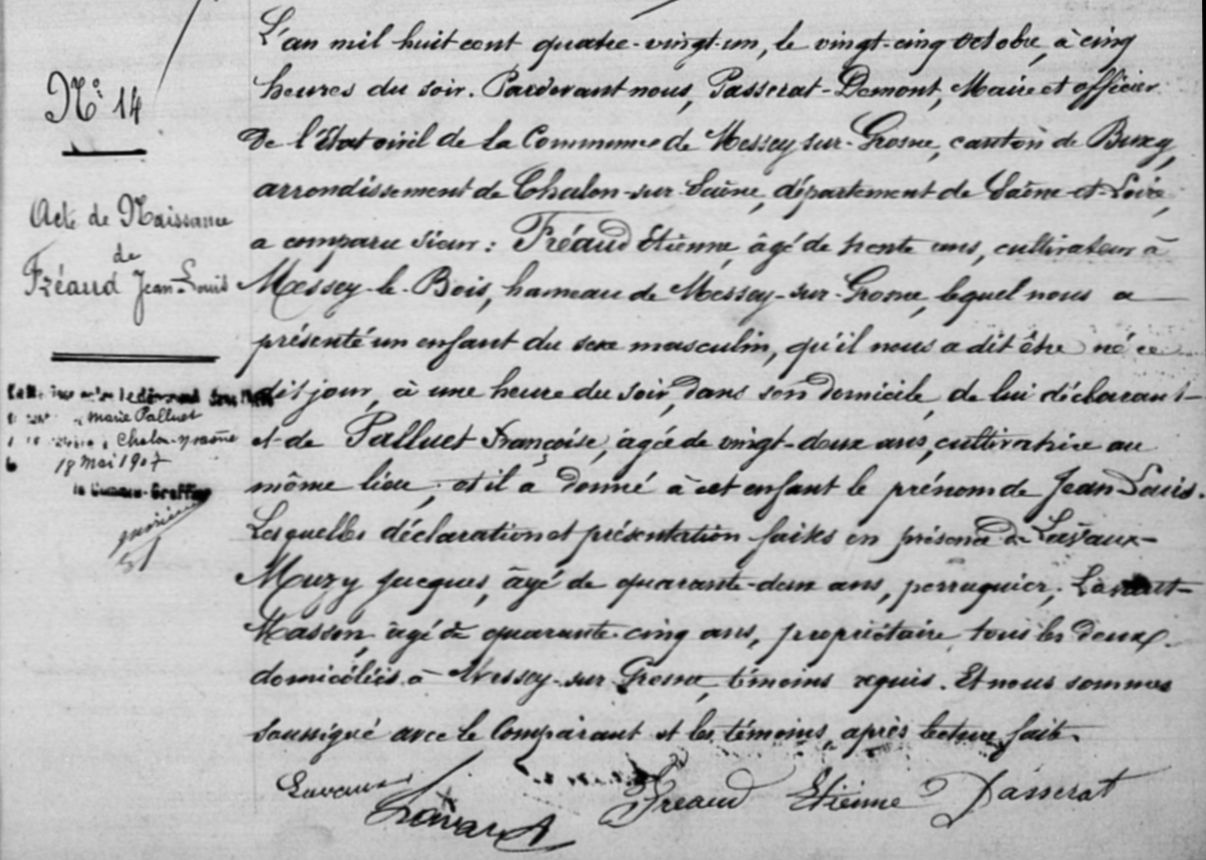 N° 14
Acte de Naissance
de
Fréaud Jean-Louis
Marie Palluet
Chalon s/ Saône
18 Mai 1907
L'an mil huit cent quatre-vingt-un, le vingt-cinq octobre, à cinq
heures du soir. Pardevant nous, Passerat-Demont, Maire et officier
de l'Etat civil de la Commune de Messey-sur-Grosne, canton de Buxy,
arrondissement de Chalon-sur-Saône, département de Saône-et-Loire,
a comparu Sieur : Fréaud Etienne, âgé de trente ans, cultivateur à
Messey-le-Bois, hameau de Messey-sur-Grosne, lequel nous a
présenté un enfant du sexe masculin, qu'il nous a dit être né ce
dit jour, à une heure du soir, dans son domicile, de lui déclarant
et de Palluet Françoise, âgée de vingt-deux ans, cultivatrice au
même lieu ; et il a donné à cet enfant le prénom de Jean Louis.
Lesquelles déclaration et présentation faites en présence de Lavaux-
Muzy Jacques, âgé de quarante-deux ans, perruquier ;
Masson, âgé de quarante-cinq ans, propriétaire, tous les deux
domiciliés à Messey-sur-Grosne, témoins requis. Et nous sommes
soussigné avec le Comparant et les témoins, après lecture faite.
Lavaux
Fréaud Etienne Passerat